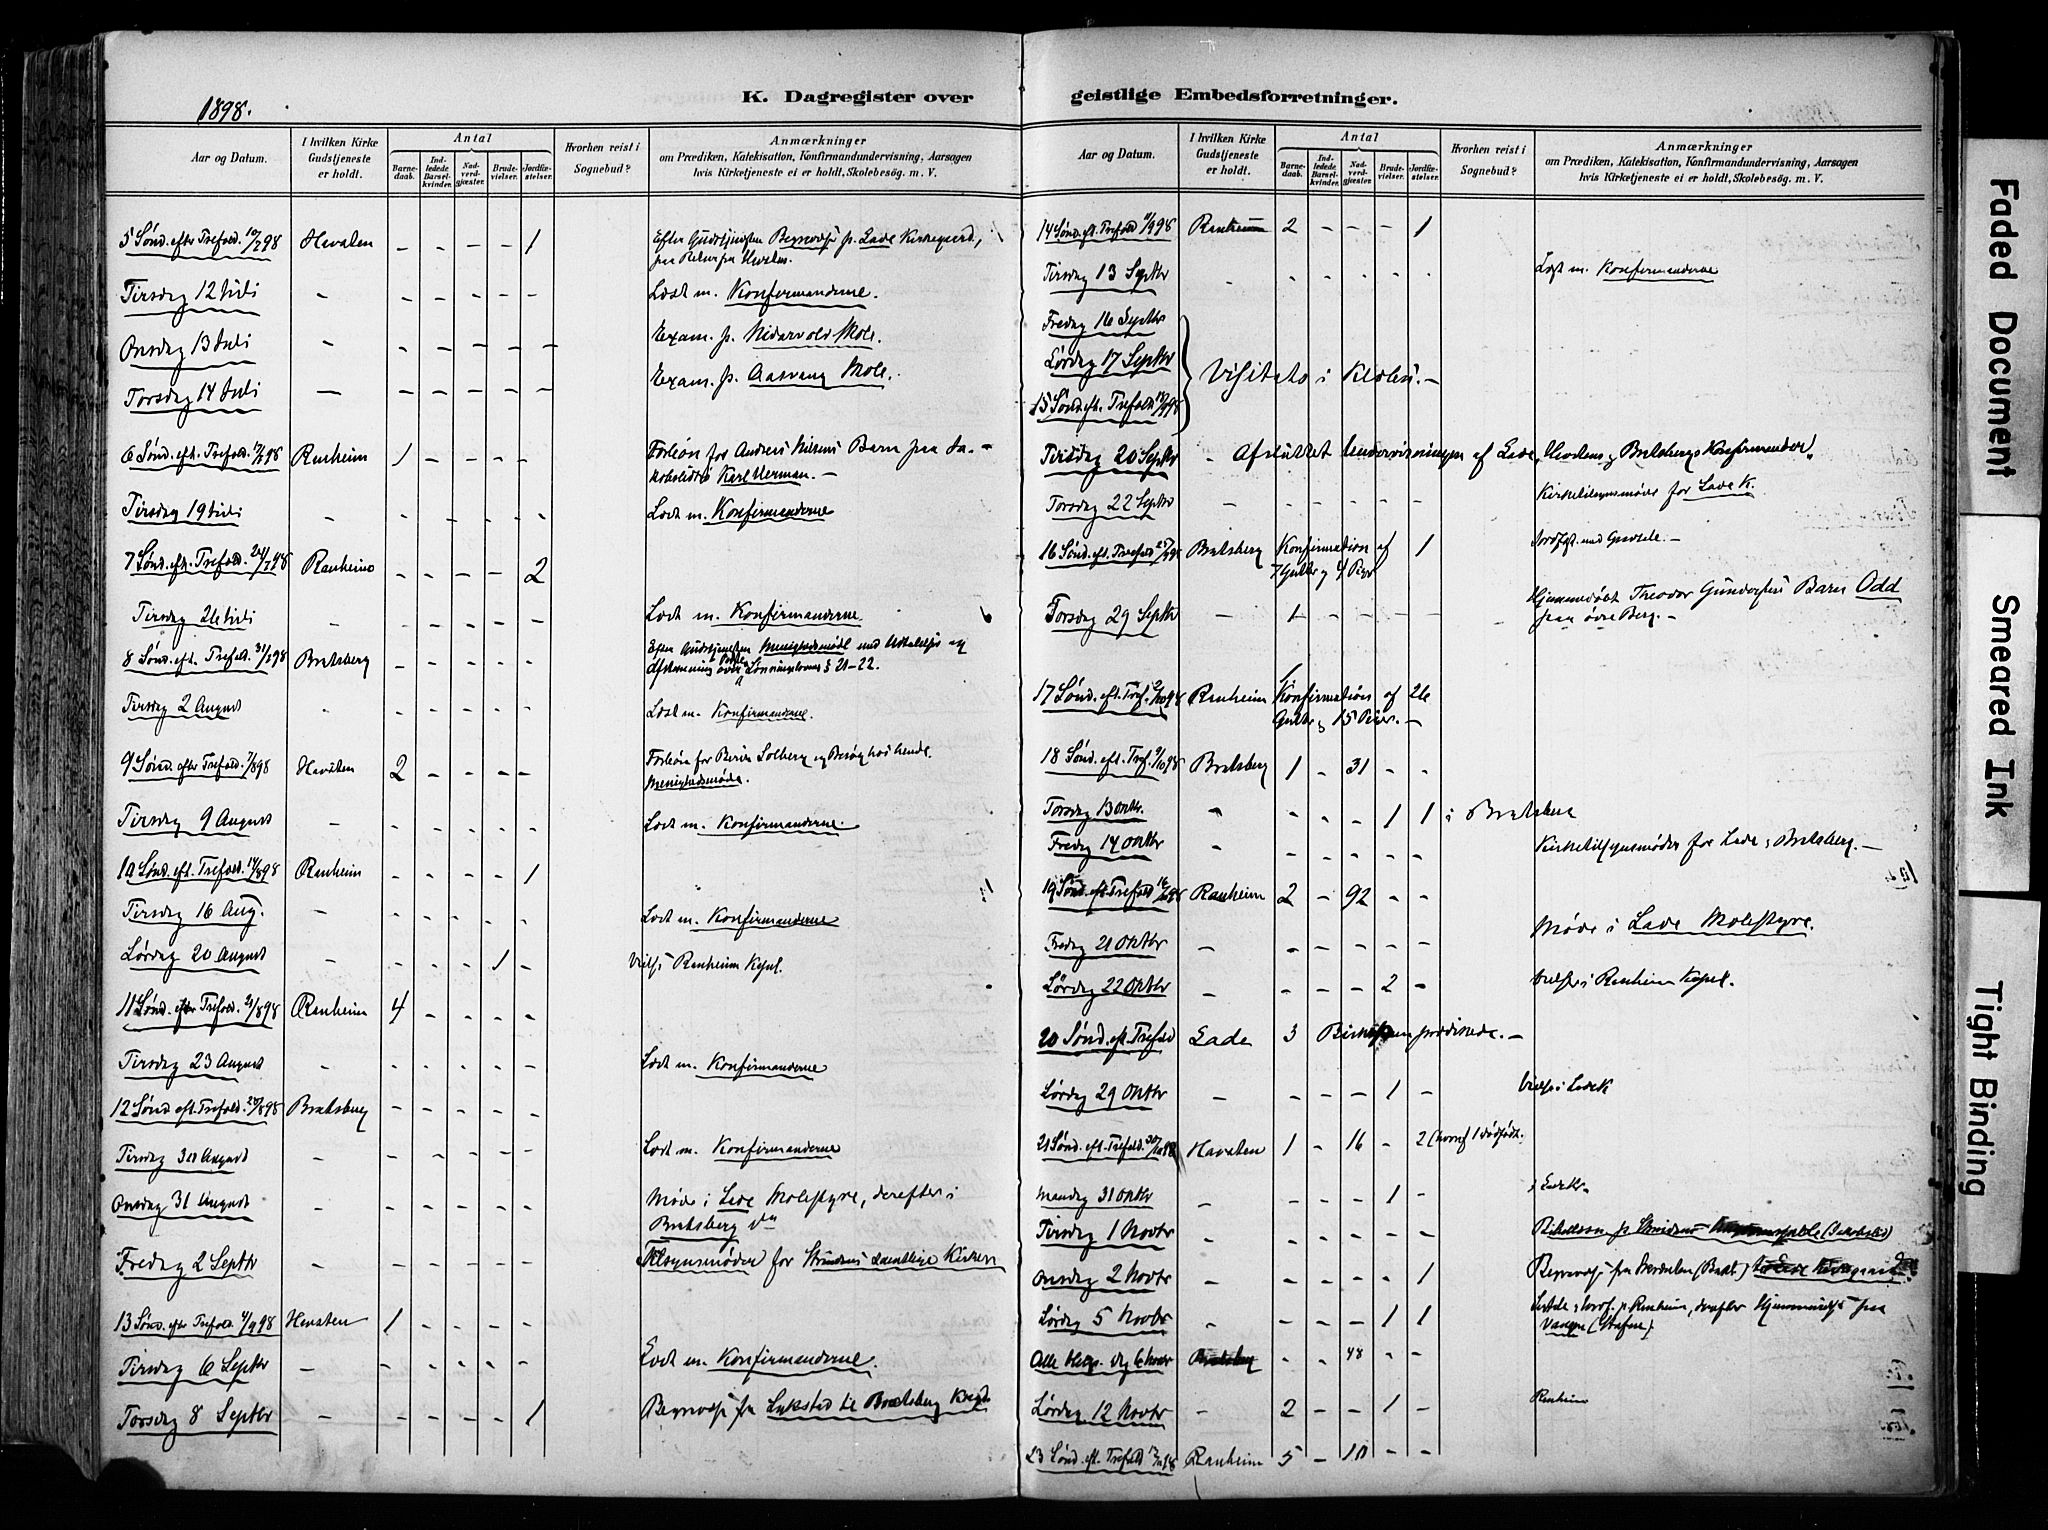 1898.
K. Dagregister over
Aar og Datum.
I hvilken Kirke Gudstjeneste er holdt.
Antal
Barnedaab.
Indledede Barselkvinder.
Nadverdgjester.
Brudevielser.
Jordfæstelser.
Hvorhen reist i Sognebud?
Anmærkninger
om Prædiken, Katekisation, Konfirmandundervisning, Aarsagen
hvis Kirketjeneste ei er holdt, Skolebesøg. m. V.
5 Sønd. efter Trefold. 10/7 98 Hevsten - - - - 1 Efter Gudstjenesten p. Lade Kirkegaard,
Tirsdag 12 Juli - - - - - - Læst m. Konfirmanderne.
Onsdag 13 Juli - - - - - - Exam. p. Nidarvold Skole.
Torsdag 14 Juli - - - - - - Exam. p. Aasvang Skole.
6 Sønd. eft. Trefold. 17/7 98 Ranheim 1 - - - - Forbøn for Barn paa Ja-
Karl Herman. -
Tirsdag 19 Juli - - - - - - Læst m. Konfirmanderne
7 Sønd. eft. Trefold. 24/7 98 Ranheim - - - - 2
Tirsdag 26 Juli - - - - - - Læst m. Konfirmanderne
8 Sønd. eft. Trefold. 31/7 98 Bratsberg - - - - - Efter Gudstjenesten Menighedsmøde med og
Afstemning over § 21-22.
Tirsdag 2 August - - - - - - Læst m. Konfirmanderne.
9 Sønd. efter Trefold. 7/8 98 Hevsten 2 - - - - Forbøn for Solberg og Besøg hos hende.
Menighedsmøde.
Tirsdag 9 August - - - - - - Læst m. Konfirmanderne.
10 Sønd. eft. Trefold. 14/8 98 Ranheim - - - - 1
Tirsdag 16 Aug. - - - - - - Læst m. Konfirmanderne
Lørdag 20 August - - - - 1 - Vielse i Ranheim Kapel.
11 Sønd. efter Trefold. 21/8 98 Ranheim 4 - - - -
Tirsdag 23 August - - - - - - Læst m. Konfirmanderne
12 Sønd. eft. Trefold. 28/8 98 Bratsberg - - - - -
Tirsdag 30 August - - - - - - Læst m. Konfirmanderne
Onsdag 31 August - - - - - - Møde i Lade Skolestyre, derefter i
Bratsberg do
Fredag 2 Septbr - - - - - - Tilsynsmøder for Strindens samtlige Kirker
13 Sønd. efter Trefold. 4/9 98 Hevsten 1 - - - -
Tirsdag 6 Septbr - - - - - - Læst m. Konfirmanderne.
Torsdag 8 Septbr - - - - - 1 til Bratsberg
geistlige Embedsforretninger.
Aar og Datum.
I hvilken Kirke Gudstjeneste er holdt.
Antal
Barnedaab.
Indledede Barselkvinder.
Nadverdgjester.
Brudevielser.
Jordfæstelser.
Hvorhen reist i Sognebud?
Anmærkninger
om Prædiken, Katekisation, Konfirmandundervisning, Aarsagen
hvis Kirketjeneste ei er holdt, Skolebesøg. m. V.
14 Sønd. eft. Trefold. 11/9 98 Ranheim 2 - - - 1
Tirsdag 13 Septbr - - - - - - Læst m. Konfirmanderne
Fredag 16 Septbr
Lørdag 17 Septbr Visitats i Klæbu. -
15 Sønd. eft. Trefold. 18/9 98
Tirsdag 20 Septbr - Afsluttet Undervisningen af Lade, Hevstens og Bratsbergs Konfirmander.
Torsdag 22 Septbr - - - - - - Kirketilsynsmøde for Lade K.
16 Sønd. eft. Trefold. 25/9 98 Bratsberg Konfirmation af 1
7 Gutter og 4 Piger
Torsdag 29 Septbr - 1 - - - - Hjemmedøbt Theodor Barn Odd
paa øvre Berg. -
17 Sønd. eft. Tref. 2/10 98 Ranheim Konfirmation af 26
Gutter og 15 Piger. -
18 Sønd. eft. Tref. 9/10 98 Bratsberg 1 - 31 - -
Torsdag 13 Oktbr. - - - - 1 1 i Bratsberg
Fredag 14 Oktbr - - - - - - Kirketilsynsmøder for Lade, Bratsberg. -
19 Sønd. eft. Trefold 16/10 98 Ranheim 2 - 92 - -
Fredag 21 Oktbr - - - - - - Møde i Lade Skolestyre.
Lørdag 22 Oktbr - - - - 2 - Vielser i Ranheim Kapel.
20 Sønd. eft. Trefold Lade 3 Biskoppen prædikede. -
Lørdag 29 Oktbr - - - - 1 - Vielse i Lade K
21 Sønd. eft. Trefold. 30/10 98 Hevsten 1 - 16 - 2 (hvoraf 1 dødfødt.
Mandag 31 Oktbr - - - - 1 - i Lade K.
Tirsdag 1 Novbr - - - - - -
Onsdag 2 Novbr - - - - - 1
Lørdag 5 Novbr - - - - 1 1 p. Ranheim, derefter Hjemmevielse paa
Alle Helg. Dag 6 Novbr Bratsberg - - 48 - -
Lørdag 12 Novbr - 2 - - 1 - Ranheim
23 Sønd. eft. Trefold 13/11 98 Ranheim 5 - 10 - -
Faded Document
Smeared Ink
Tight Binding